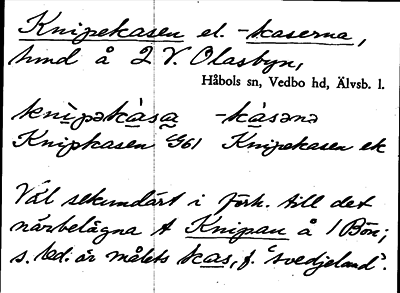 Knipekasen el. -kaserna,
hmd å 2 V. Olasbyn,
Håbols sn, Vedbo hd, Älvsb. l.
knìpəkàsa -kàsənə
Knipkasen G61 Knipekasen ek
Väl sekundärt i förh. till det
närbelägna t Knipan å 1 Bön;
s. led. är målets kas, f. 'svedjeland'.